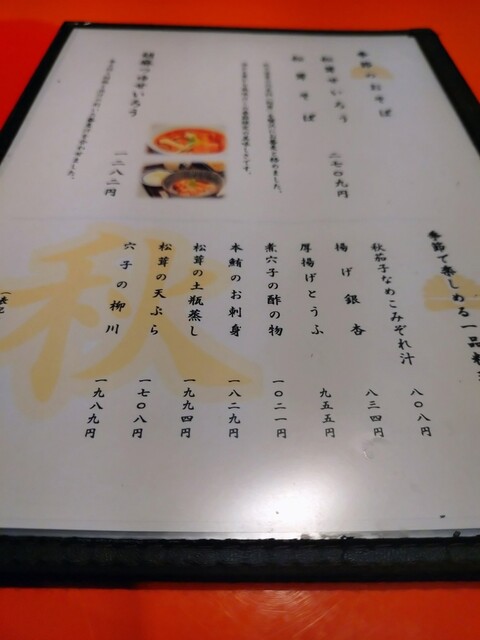 季節のおそば
松茸せいろう
松茸そば
二七〇九円
胡麻つけせいろう
一二八二円
季節で楽しめる一品料
秋茄子なめこみぞれ汁
八〇八円
揚げ銀杏
八三四円
厚揚げとうふ
九五五円
煮穴子の酢の物
一〇二一円
本鮪のお刺身
一八二九円
松茸の土瓶蒸し
一九九四円
松茸の天ぷら
一七〇八円
穴子の柳川
一九八九円
秋